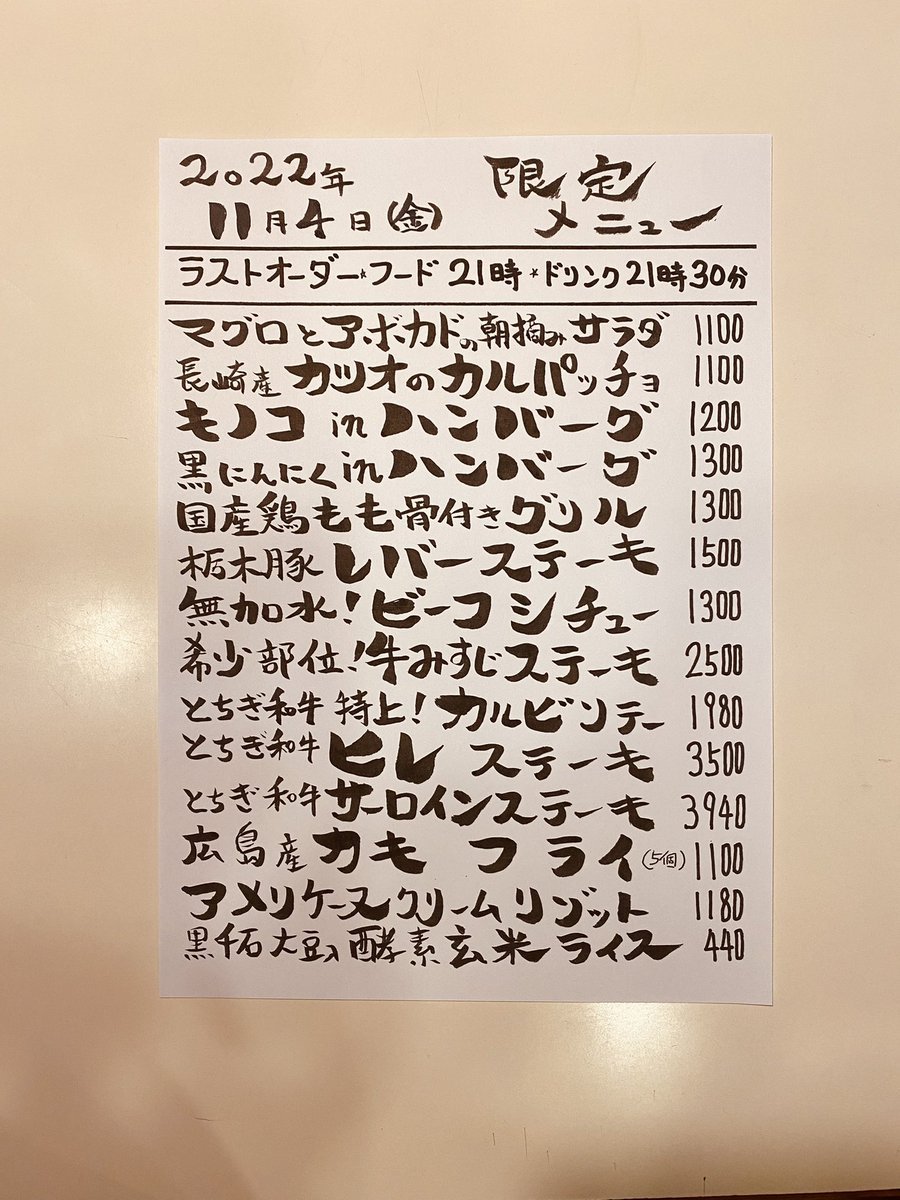 2022年
11月4日(金)
限定
メニュー
ラストオーダー*フード 21時*ドリンク21時30分
マグロとアボカドの朝摘みサラダ 1100
長崎産カツオのカルパッチョ 1100
キノコinハンバーグ 1200
黒にんにくinハンバーグ 1300
国産鶏もも骨付きグリル 1300
栃木豚レバーステーキ 1500
無加水!ビーフシチュー 1300
希少部位!牛みすじステーキ 2500
とちぎ和牛特上!カルビソテー 1980
とちぎ和牛ヒレステーキ 3500
とちぎ和牛サーロインステーキ 3940
広島産カキフライ(5個) 1100
アメリケーヌクリームリゾット 1180
黒千石大豆入酵素玄米ライス 440